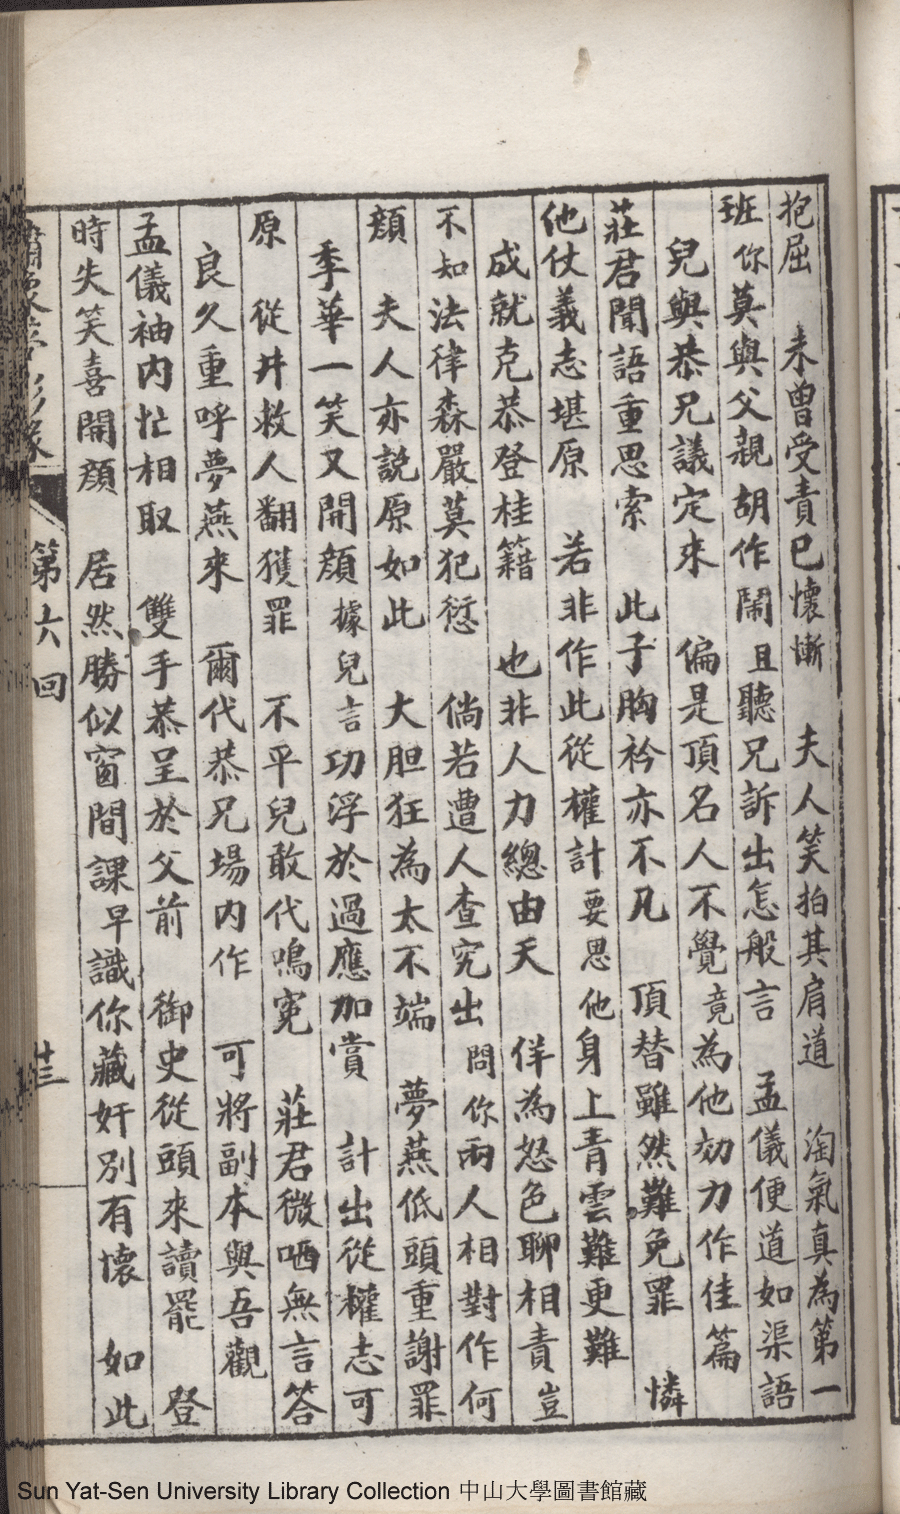 抱屈　未曾受責已懷慚　夫人笑拍其肩道　淘氣真為第一
班你莫與父親胡作鬧且聽兄訴出怎般言　孟儀便道如渠語
兒與恭兄議定來　偏是頂名人不覺竟為他効力作佳篇
莊君聞語重思索　此子胸衿亦不凡　頂替雖然難免罪　憐
他仗義志堪原　若非作此從權計要思他身上青雲難更難
成就克恭登桂籍　也非人力總由天　佯為怒色聊相責豈
不知法律森嚴莫犯愆　倘若遭人查究出問你兩人相對作何
顏　夫人亦說原如此　大胆狂為太不端　夢燕低頭重謝罪
季華一笑又開顏據兒言功浮於過應加賞　計出從權志可
原　從井救人翻獲罪　不平兒敢代鳴寃　莊君微哂無言答
良久重呼夢燕來　爾代恭兄場内作　可將副本與吾觀
孟儀袖内忙相取　雙手恭呈於父前　御史從頭來讀罷　登
時失笑喜開顏　居然勝似窗間課早識你藏奸別有懷　如此
第六回
Sun Yat-Sen University Library Collection 中山大學圖書館藏